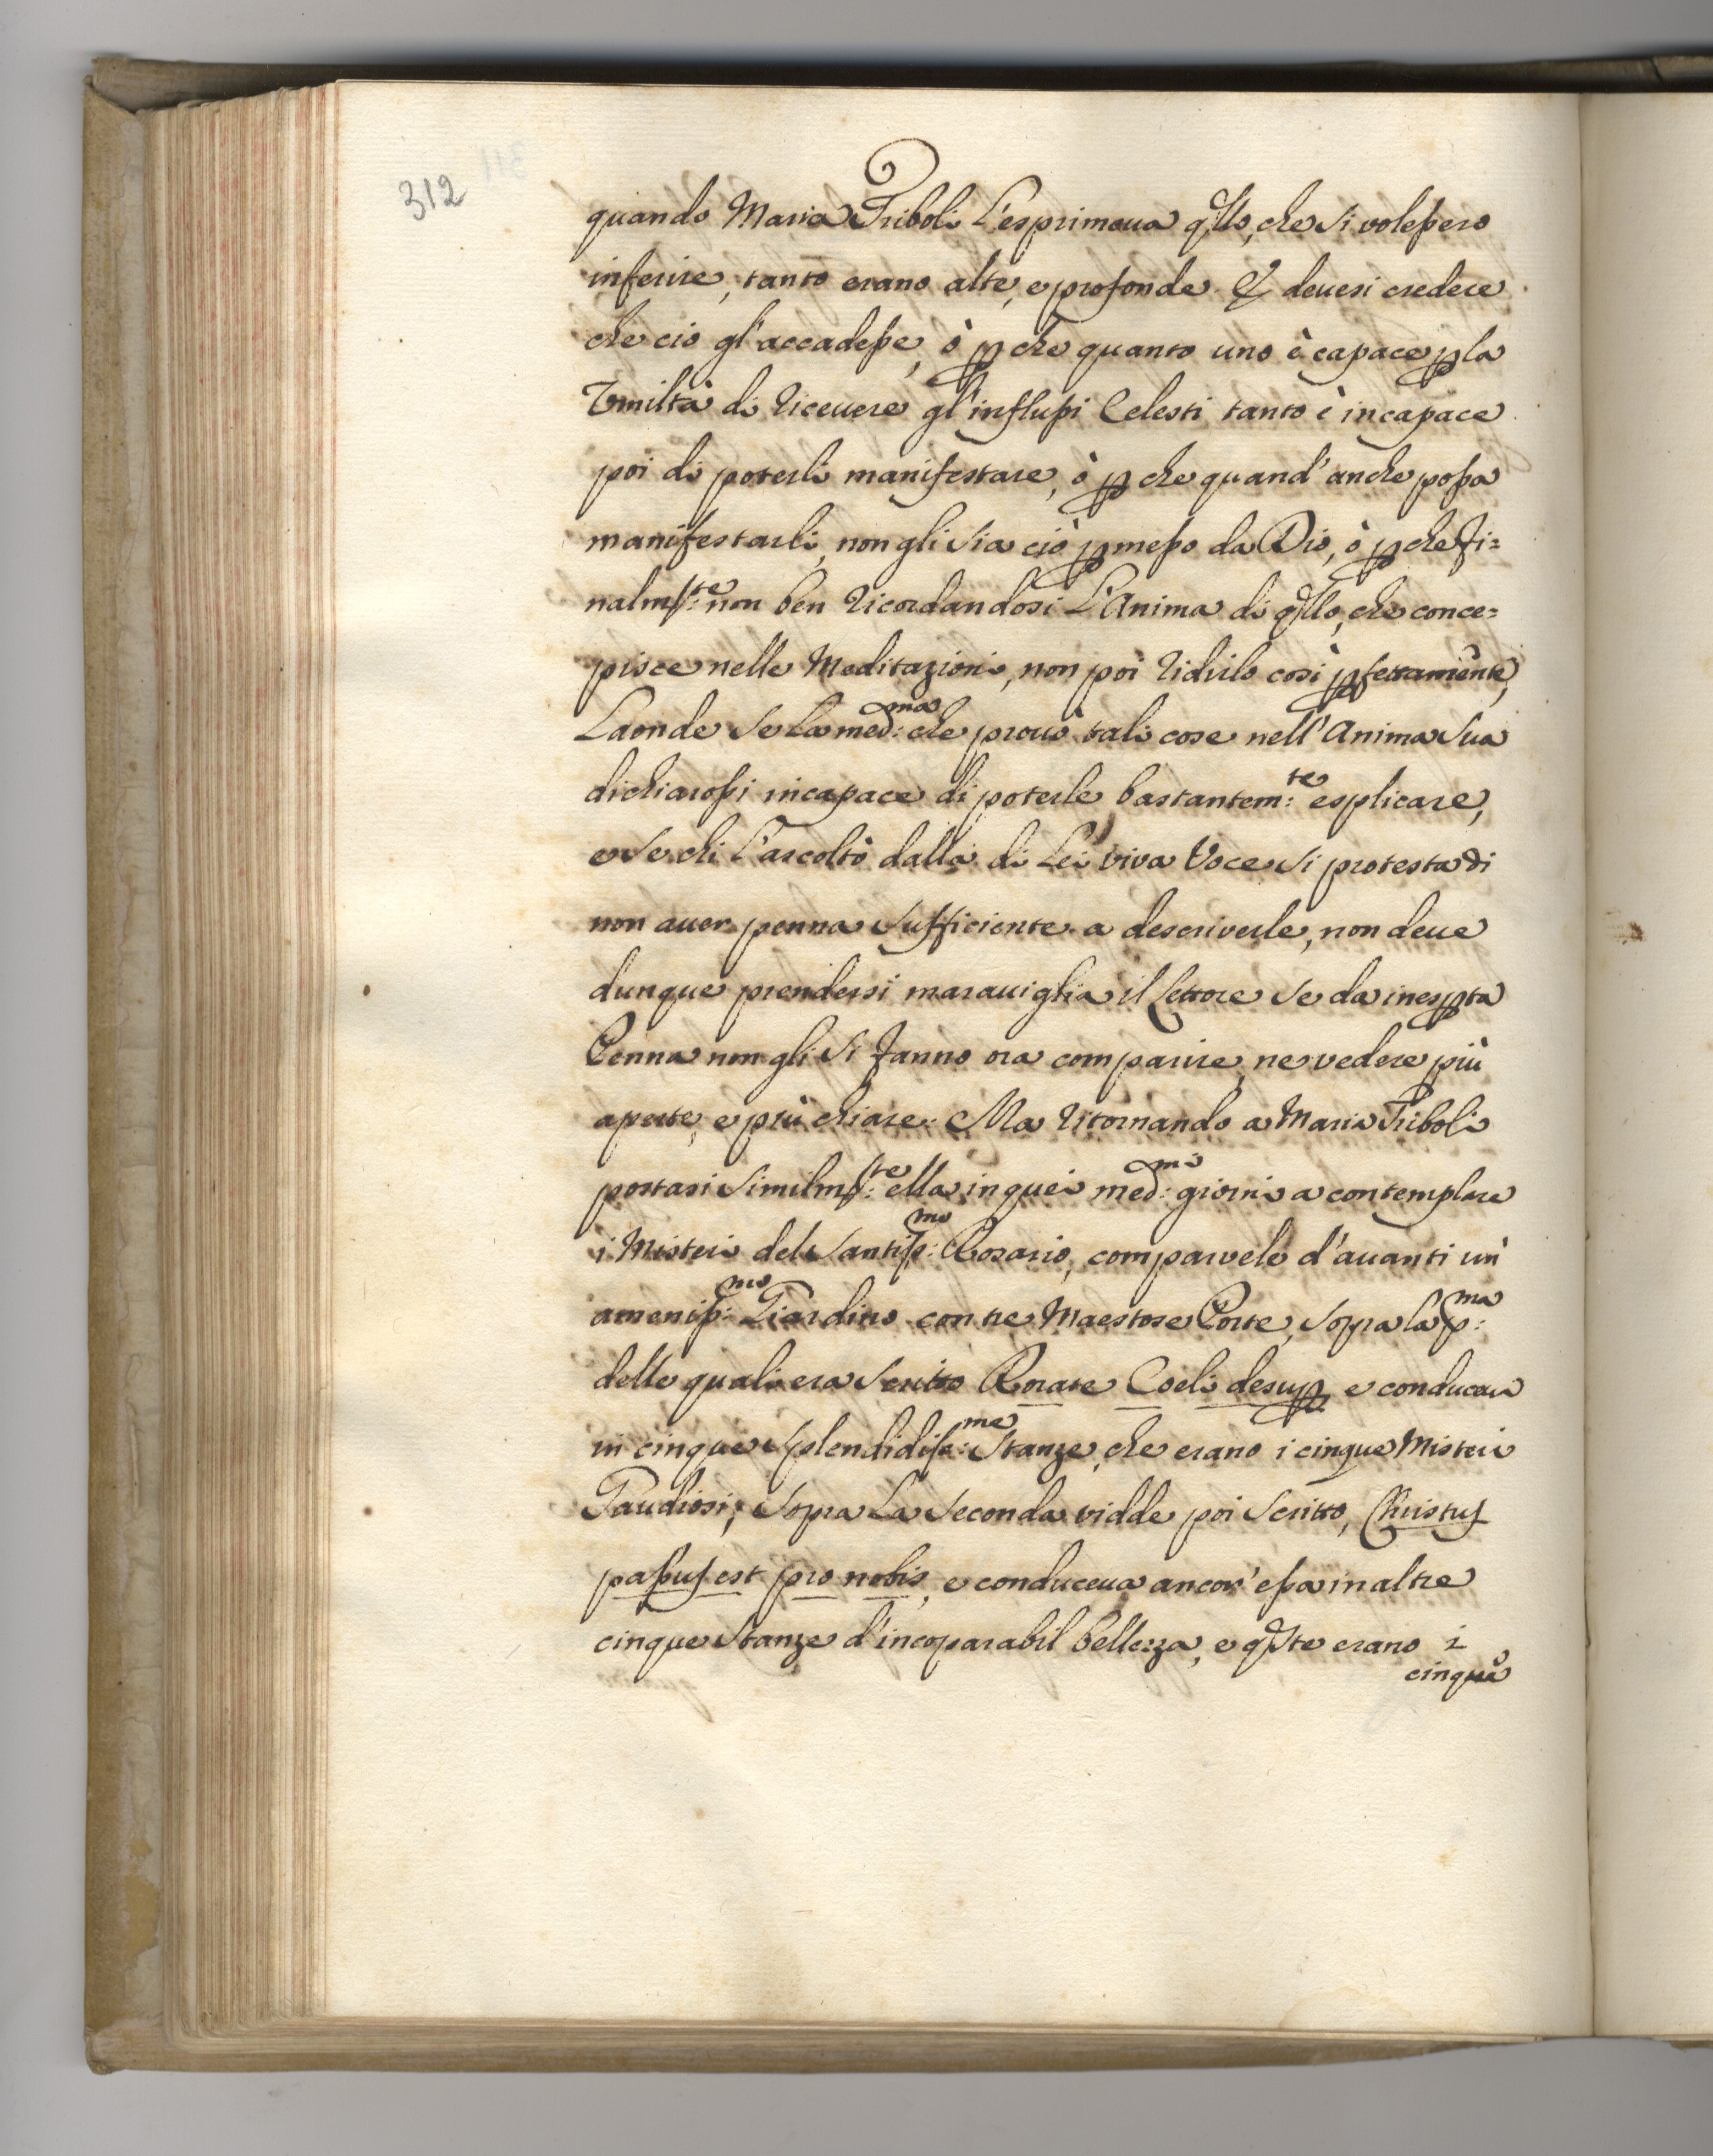 312
quando Maria Triboli l'esprimeua q.llo, che si volessero
inferire, tanto erano alte, e profonde. E deuesi credere
che ciò gl'accadesse, ò p che quanto uno è capace p la
Vmiltà di riceuere gl'influssi Celesti tanto è incapace
poi di poterli manifestare, ò p che quand'anche possa
manifestarli, non gli sia ciò pmesso da Dio, ò p che fi=
nalm:te non ben ricordandosi l'Anima di q.llo, che conce=
pisce nelle Meditazioni, non poi ridirlo così pfettamente,
Laonde se la med:ma che prouò tali cose nell'Anima sua
dichiarossi incapace di poterle bastantem:te esplicare,
e se chi l'ascoltò dalla di Lei viva Voce si protesta di
non auer penna sufficiente a descriverle, non deue
dunque prendersi marauiglia il Lettore se da inespta
Penna non gli si fanno ora comparire, ne vedere più
aperte, e più chiare. Ma ritornando a Maria Triboli
postasi similm:te ella in quei med:mi giorni a contemplare
i Misteri del Santiss:mo Rosario, comparvele d'auanti un'
ameniss:mo Giardino con tre Maestose Porte, sopra la p:ma
delle quali era scritto Rorate Coeli desup e conduceua
in cinque splendidiss:me Stanze, che erano i cinque Misteri
Gaudiosi; sopra la seconda vidde poi scritto, Christus
passus est pro nobis, e conduceua ancor'essa in altre
cinque stanze d'incoparabil bellezza, e q.ste erano i
cinque